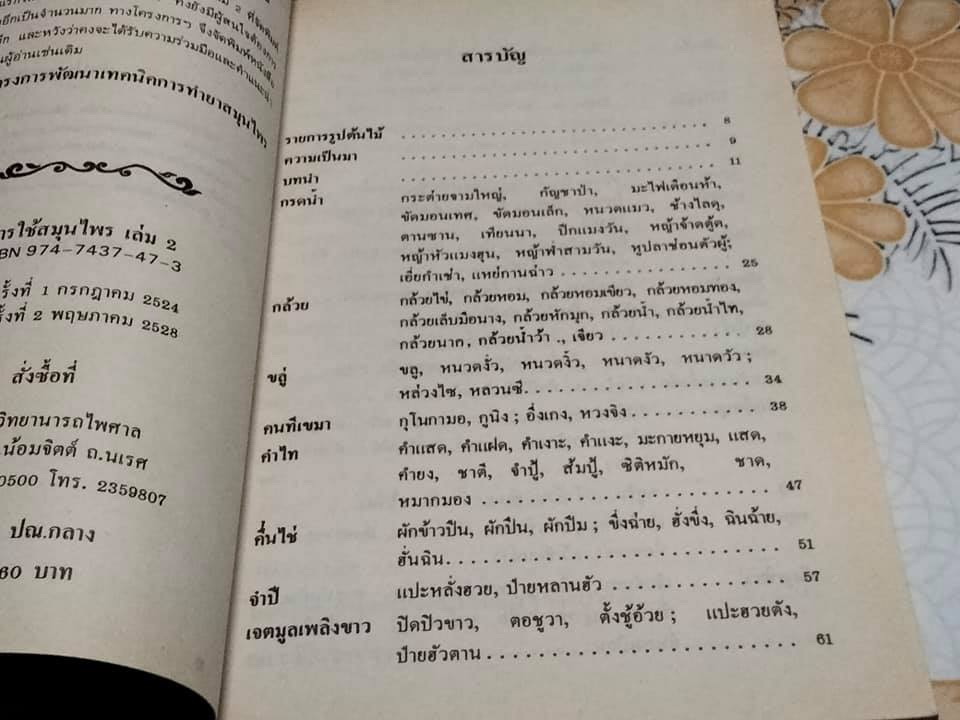 เล่ม 2 ที่จัดพิมพ์
อีกเป็นจำนวนมาก ทางโครงการฯ จึงจัดพิมพ์หนังสือ
และหวังว่าคงจะได้รับความร่วมมือและคำแนะนำ
ผู้อ่านเช่นเดิม
โครงการพัฒนาเทคนิคการทำยาสมุนไพร
การใช้สมุนไพร เล่ม 2
ISBN 974-7437-47-3
ครั้งที่ 1 กรกฎาคม 2524
ครั้งที่ 2 พฤษภาคม 2528
สั่งซื้อที่
วิทยานารถไพศาล
น้อมจิตต์ ถ.นเรศ
0500 โทร. 2359807
ปณ.กลาง
60 บาท
สารบัญ
รายการรูปต้นไม้ 8
ความเป็นมา 9
บทนำ 11
กรดน้ำ กระต่ายจามใหญ่, กัญชาป่า, มะไฟเดือนห้า,
ขัดมอนเทศ, ขัดมอนเล็ก, หนวดแมว, ช้างไลดุ,
ตานซาน, เทียนนา, ปีกแมงวัน, หญ้าจ้าดตู้ด,
หญ้าหัวแมงฮุน, หญ้าฟ้าสามวัน, หูปลาช่อนตัวผู้;
เอี่ยกำเช่า, แหย่กานฉ่าว 25
กล้วย กล้วยไข่, กล้วยหอม, กล้วยหอมเขียว, กล้วยหอมทอง,
กล้วยเล็บมือนาง, กล้วยหักมุก, กล้วยน้ำ, กล้วยน้ำไท,
กล้วยนาก, กล้วยน้ำว้า ., เจียว 28
ขลู่ ขลู, หนวดงั่ว, หนวดงิ้ว, หนาดงัว, หนาดวัว ;
หล่วงไซ, หลวนซี 34
คนทีเขมา กุโนกามอ, กูนิง ; อึ่งเกง, หวงจิง 38
คำไท คำแสด, คำแฝด, คำเงาะ, คำแงะ, มะกายหยุม, แสด,
คำยง, ชาตี, จำปู้, ส้มปู้, ซิติหมัก, ชาด,
หมากมอง 47
คื่นไช่ ผักข้าวปืน, ผักปืน, ผักปืม ; ขึ่งฉ่าย, ฮั่งขึ่ง, ฉินฉ้าย,
ฮั่นฉิน 51
จำปี แปะหลั่งฮวย, ป๋ายหลานฮัว 57
เจตมูลเพลิงขาว ปิดปิวขาว, ตอชูวา, ตั้งชู้อ้วย ; แปะฮวยตัง,
ป๋ายฮัวตาน 61